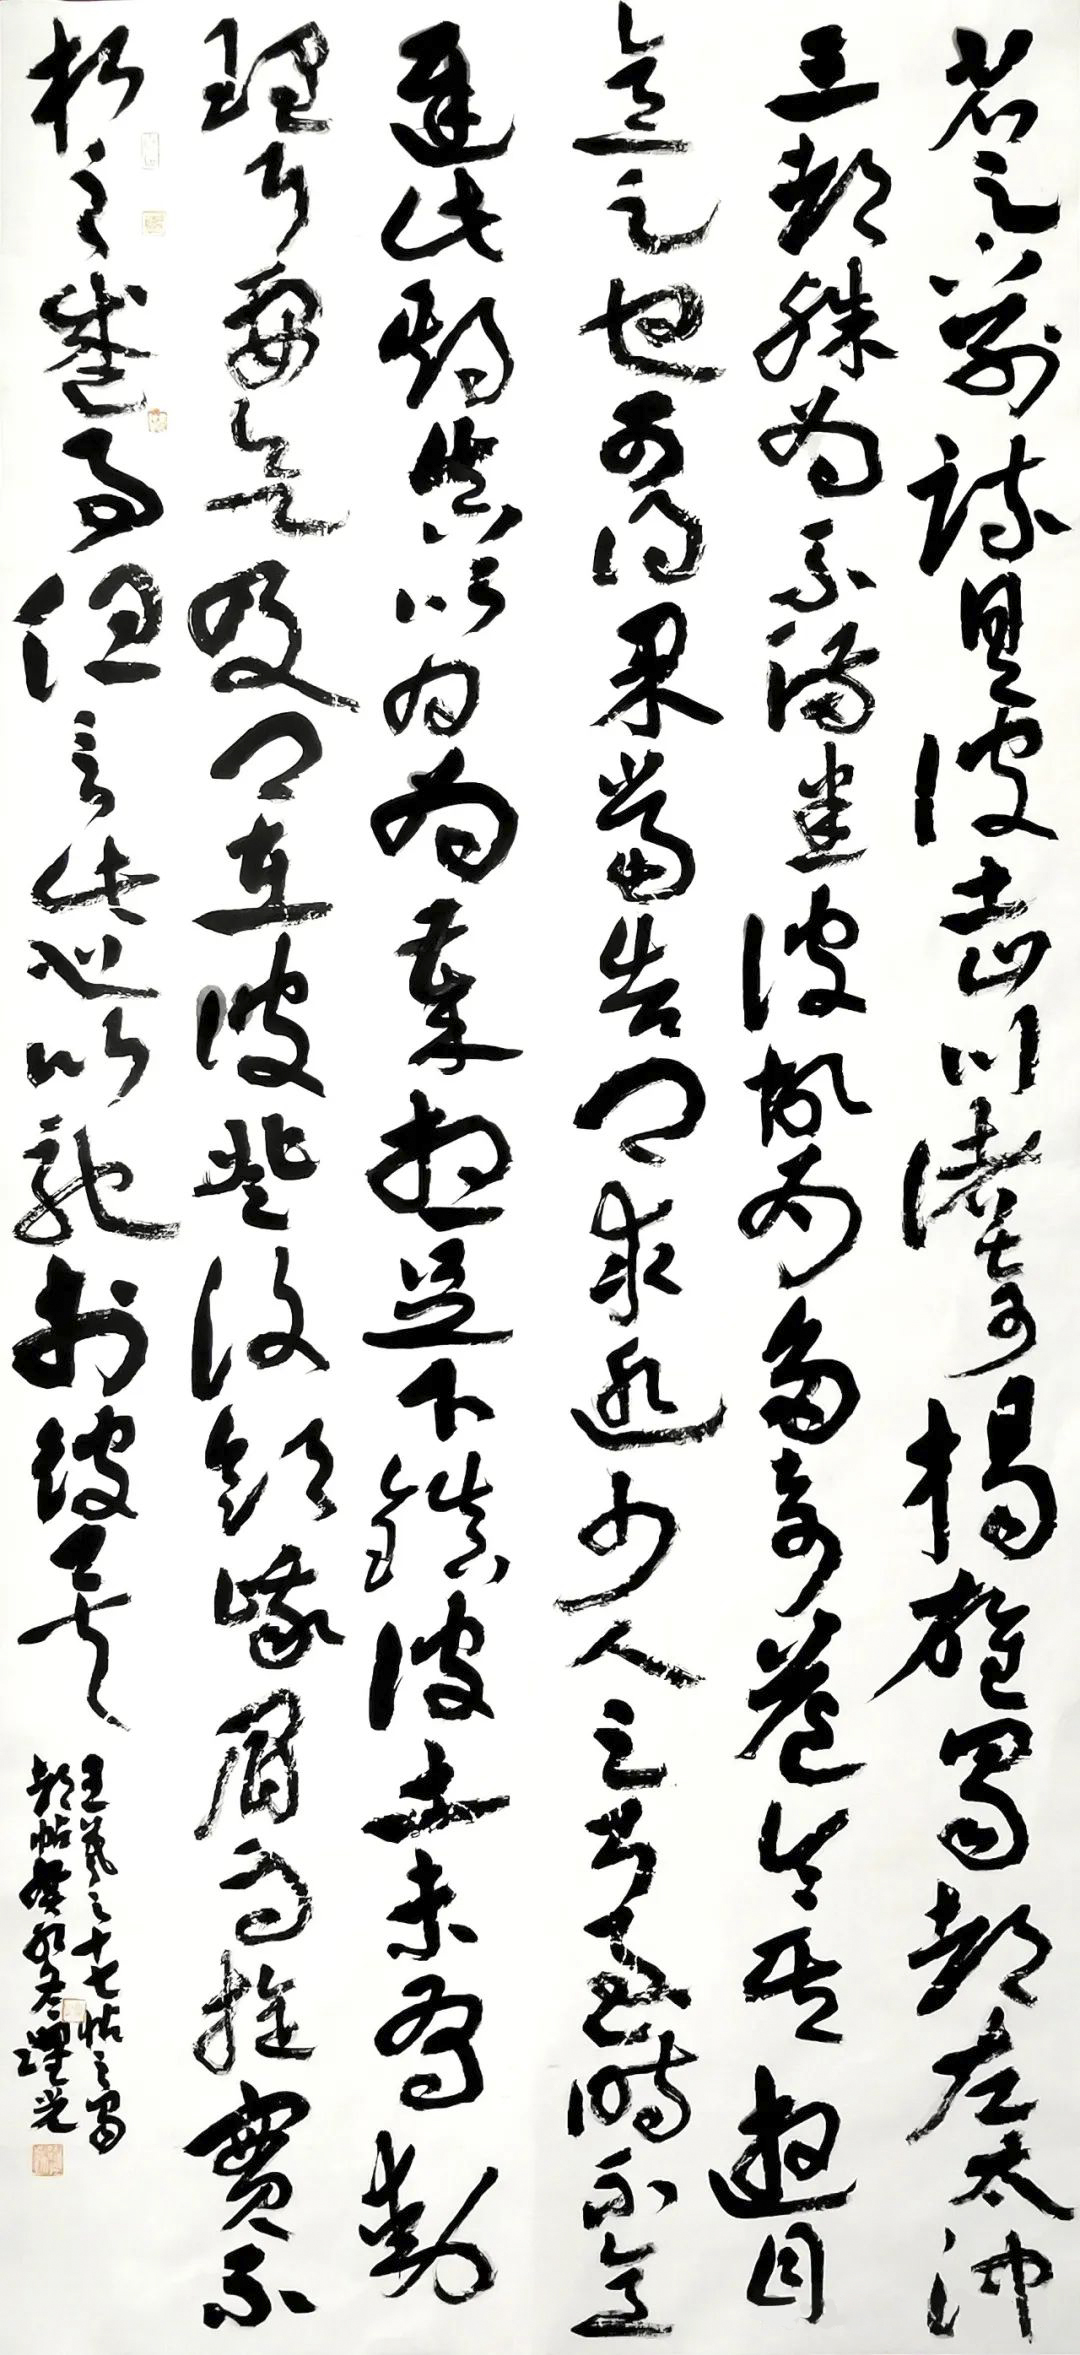 省足下別疏具彼土山川諸奇楊雄蜀都左太沖
三都殊為不備悉彼故為多奇益令其遊目
意足也可得果當告卿求迎少人足耳至時示意
遲此期真以日為歲想足下鎮彼土未有動
理耳要欲及卿在彼登汶領峨眉而旋實不
朽之盛事但言此心以馳於彼矣
王羲之十七帖之蜀
都帖癸卯冬光